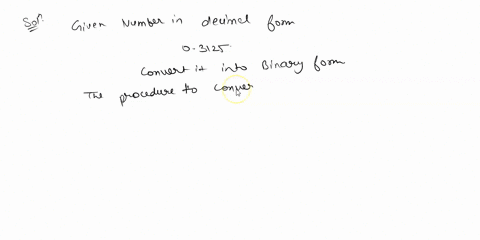 Sol: Given Number in decimal form
0.3125
Convert it into Binary form
The procedure to conver